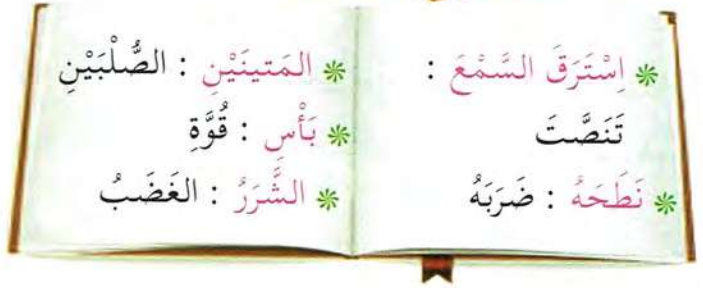 اِسْتَرَقَ السَّمْعَ :
تَنَصَّتَ
نَطَحَهُ : ضَرَبَهُ
المَتينَيْنِ : الصُّلْبَيْنِ
بَأْسِ : قُوَّةِ
الشَّرَرُ : الغَضَبُ